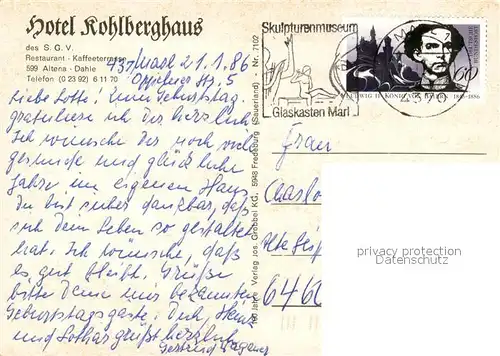 Hotel Kohlberghaus
des S. G. V.
Restaurant - Kaffeeterrasse
599 Altena - Dahle
Telefon (0 23 92) 6 11 70
437 Marl 21.1.86
Str. 5
Liebe Lotte! Zum Geburtstag
gratuliere ich Dir herzlich
Ich wünsche Dir noch viele
gesunde und glückliche
Jahre im eigenen Haus
Du bist sicher dankbar, daß
sich dein Leben so gestaltet
hat. Ich wünsche, daß
es gut bleibt. Grüße
bitte Deine mir bekannten
Geburtstagsgäste! Dich, Heinz
und Lothar grüßt herzlich
Gertrud Wagener
100 Jahre Verlag Jos. Grobbel KG, 5948 Fredeburg (Sauerland) - Nr. 7102
Skulpturenmuseum
Glaskasten Marl
60
LUDWIG II. KÖNIG VON BAYERN 1845-1886
Frau
Charlo
Alte
6460
privacy protection
Datenschutz